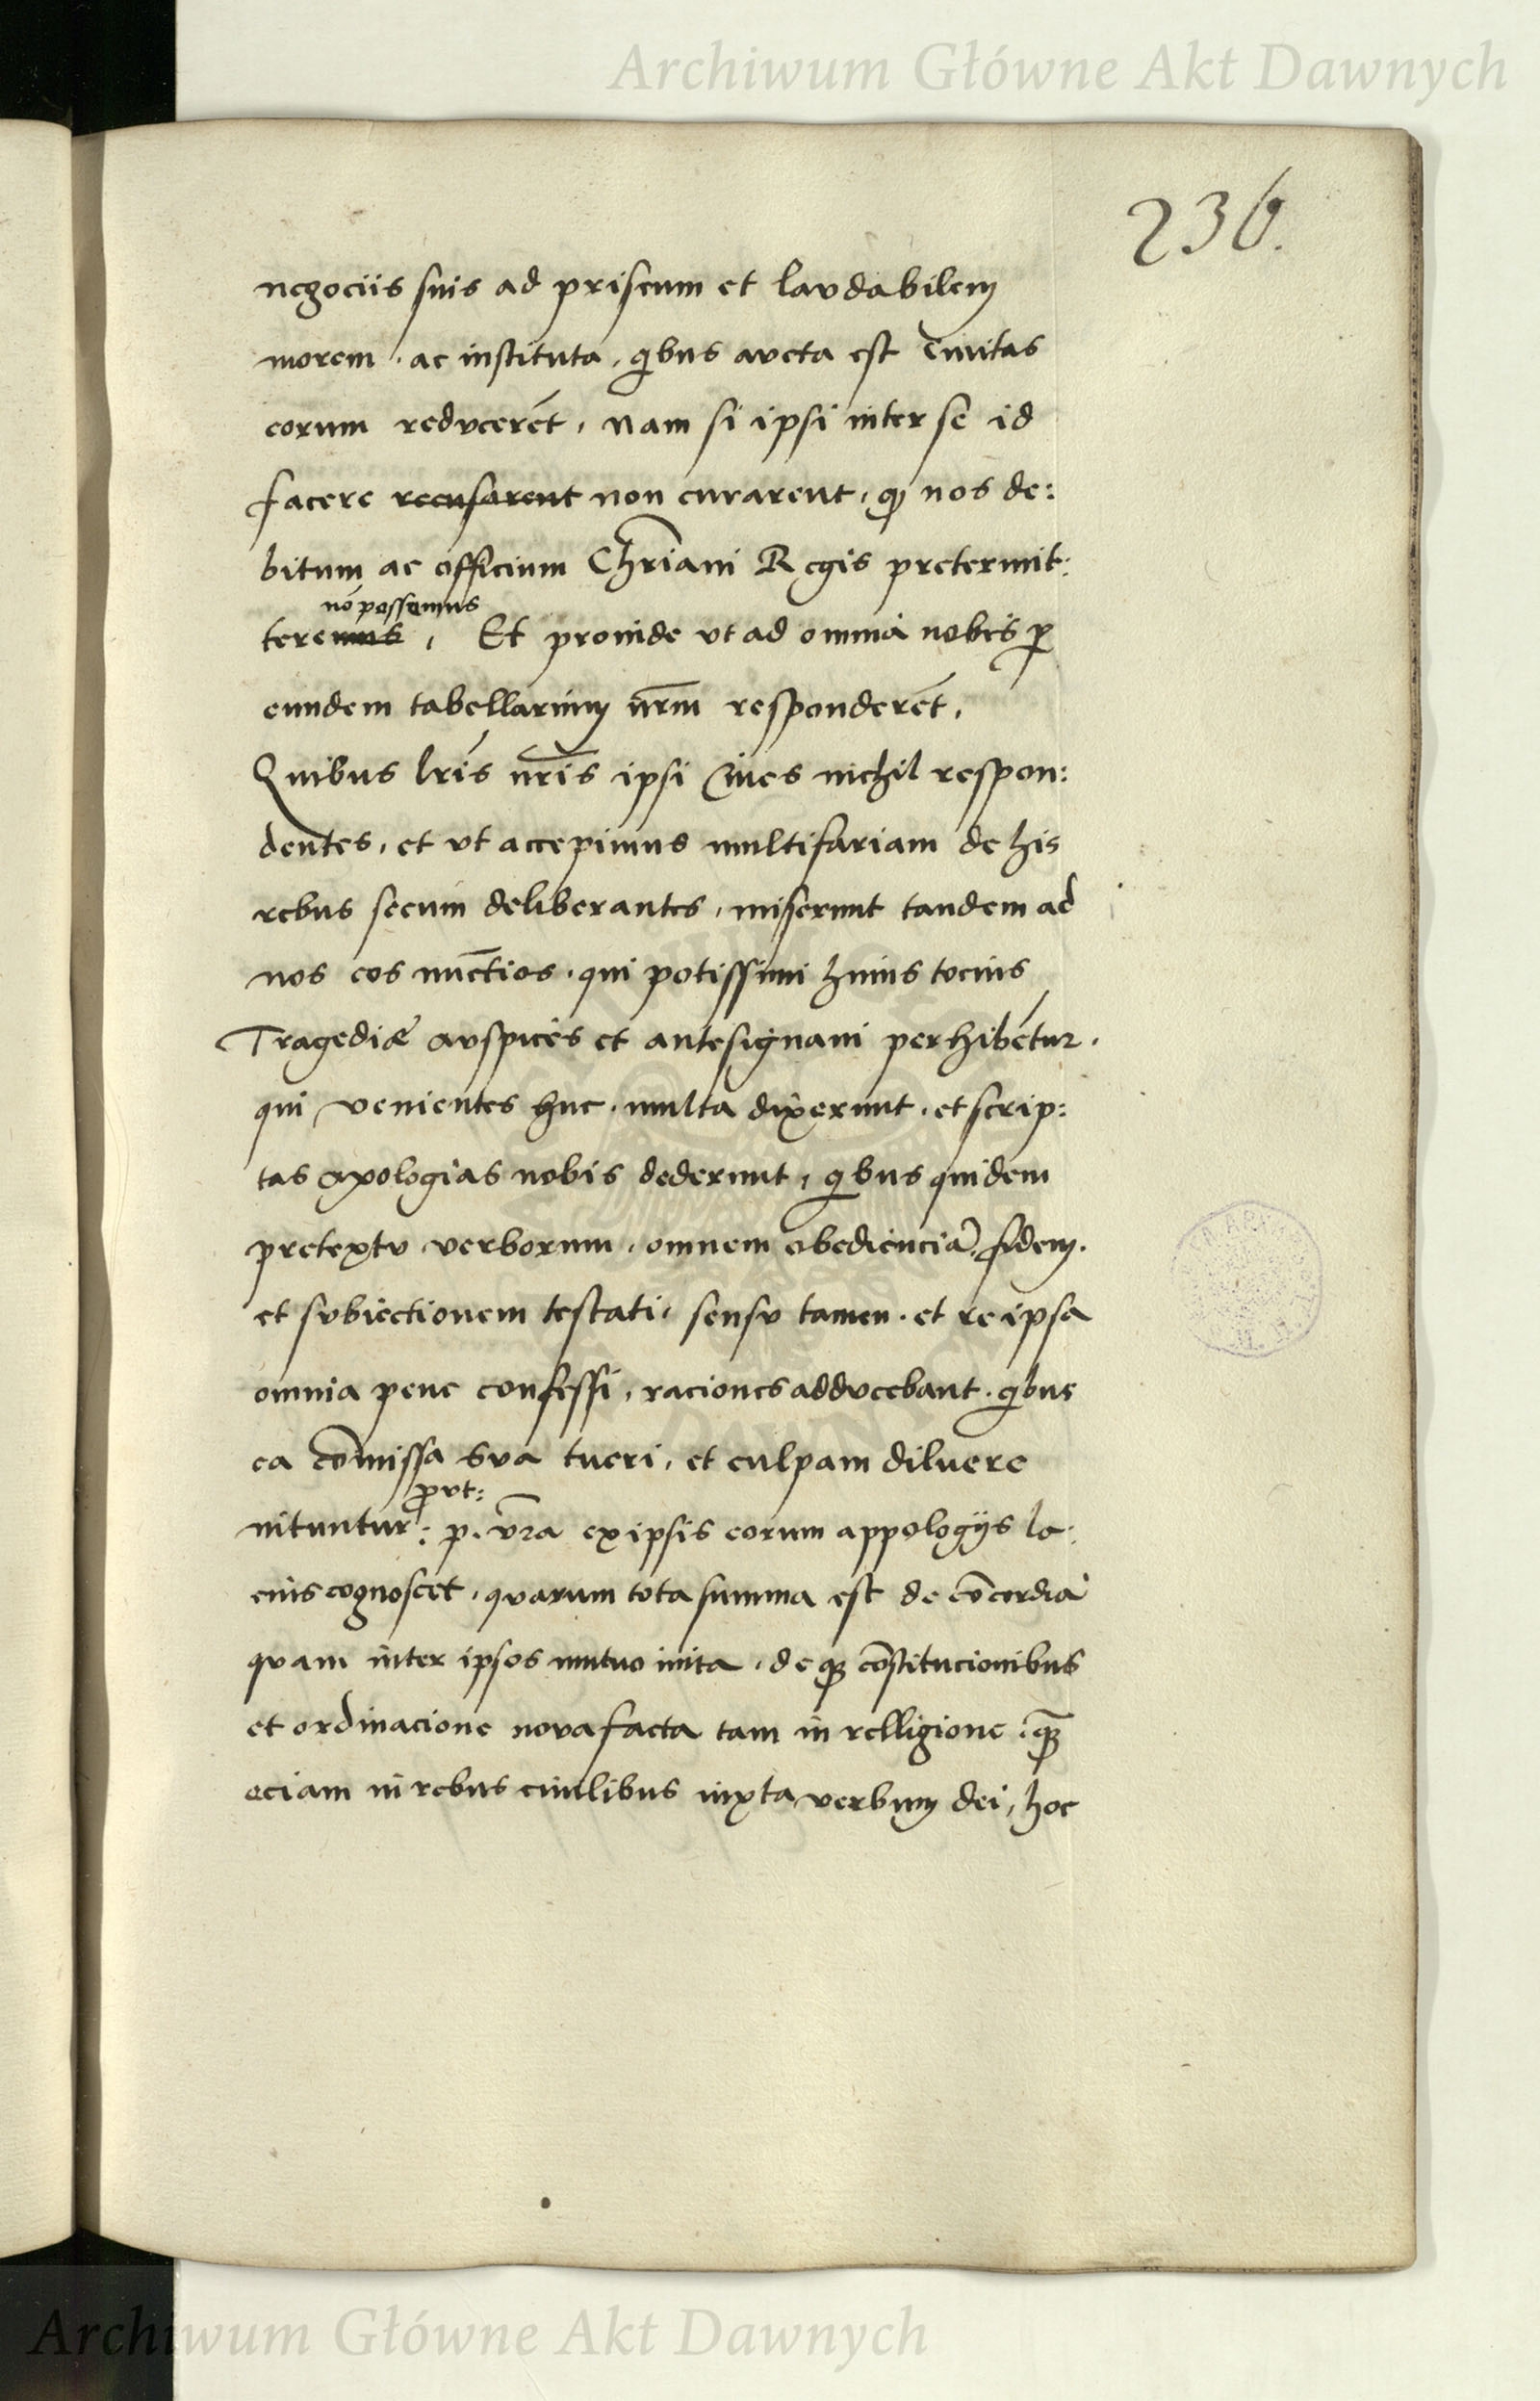 Archiwum Główne Akt Dawnych
236.
negociis suis ad priscum et laudabilem
morem, ac instituta, qibus aucta est Ciuitas
eorum reducerẽt, nam si ipsi inter se id
facere recusarent non curarent, qd nos de:
bitum ac officium Chrĩani Regis pretermit:
nõ possemus
teremus, Et proinde vt ad omnia nobis p
eundem tabellarium nr̃m responderẽt,
Quibus lr̃is nr̃is ipsi Ciues nichil respon:
dentes, et vt accepimus multifariam de his
rebus secum deliberantes, miserunt tandem ad
nos eos nunctios, qui potissimi huius tocius
Tragediæ auspices et antesignani perhibẽtur.
qui venientes huc, multa dixerunt, et scrip:
tas apologias nobis dederunt, qibus quidem
pretextu verborum, omnem obedienciã, fidem,
et subiectionem testati, sensu tamen, et re ipsa
omnia pene confessi, raciones adducebant, qibus
ea cõmissa sua tueri, et culpam diluere
prvt:
nituntur: p. vr̃a ex ipsis eorum appologijs la:
cius cognoscet, quarum tota summa est de cõcordia
quam inter ipsos mutuo inita, de qz cõstitucionibus
et ordinacione noua facta tam in relligione, qz̃
eciam in rebus ciuilibus iuxta verbum dei, hoc
Archiwum Główne Akt Dawnych